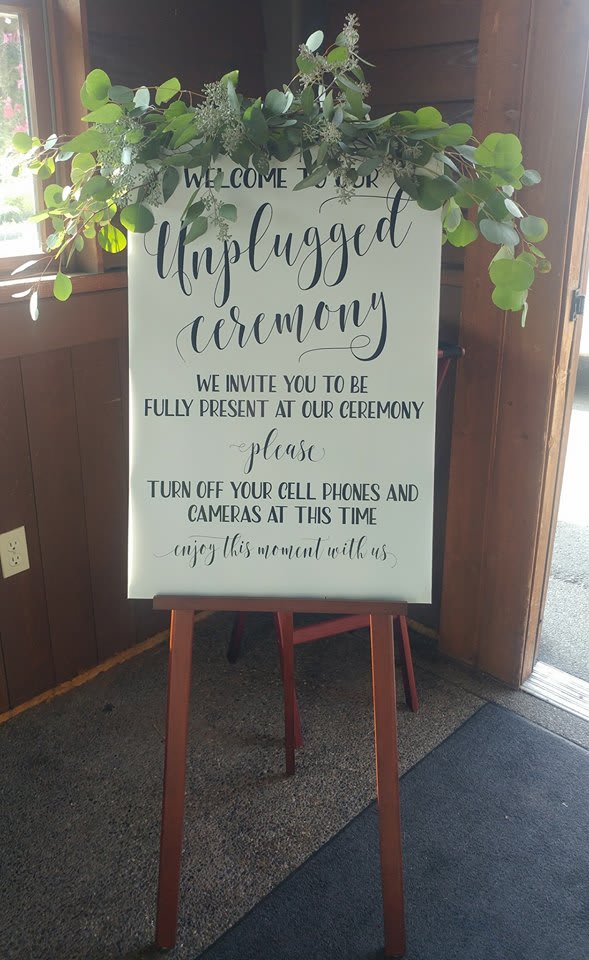 WELCOME TO OUR
Unplugged
ceremony
WE INVITE YOU TO BE
FULLY PRESENT AT OUR CEREMONY
please
TURN OFF YOUR CELL PHONES AND
CAMERAS AT THIS TIME
enjoy this moment with us